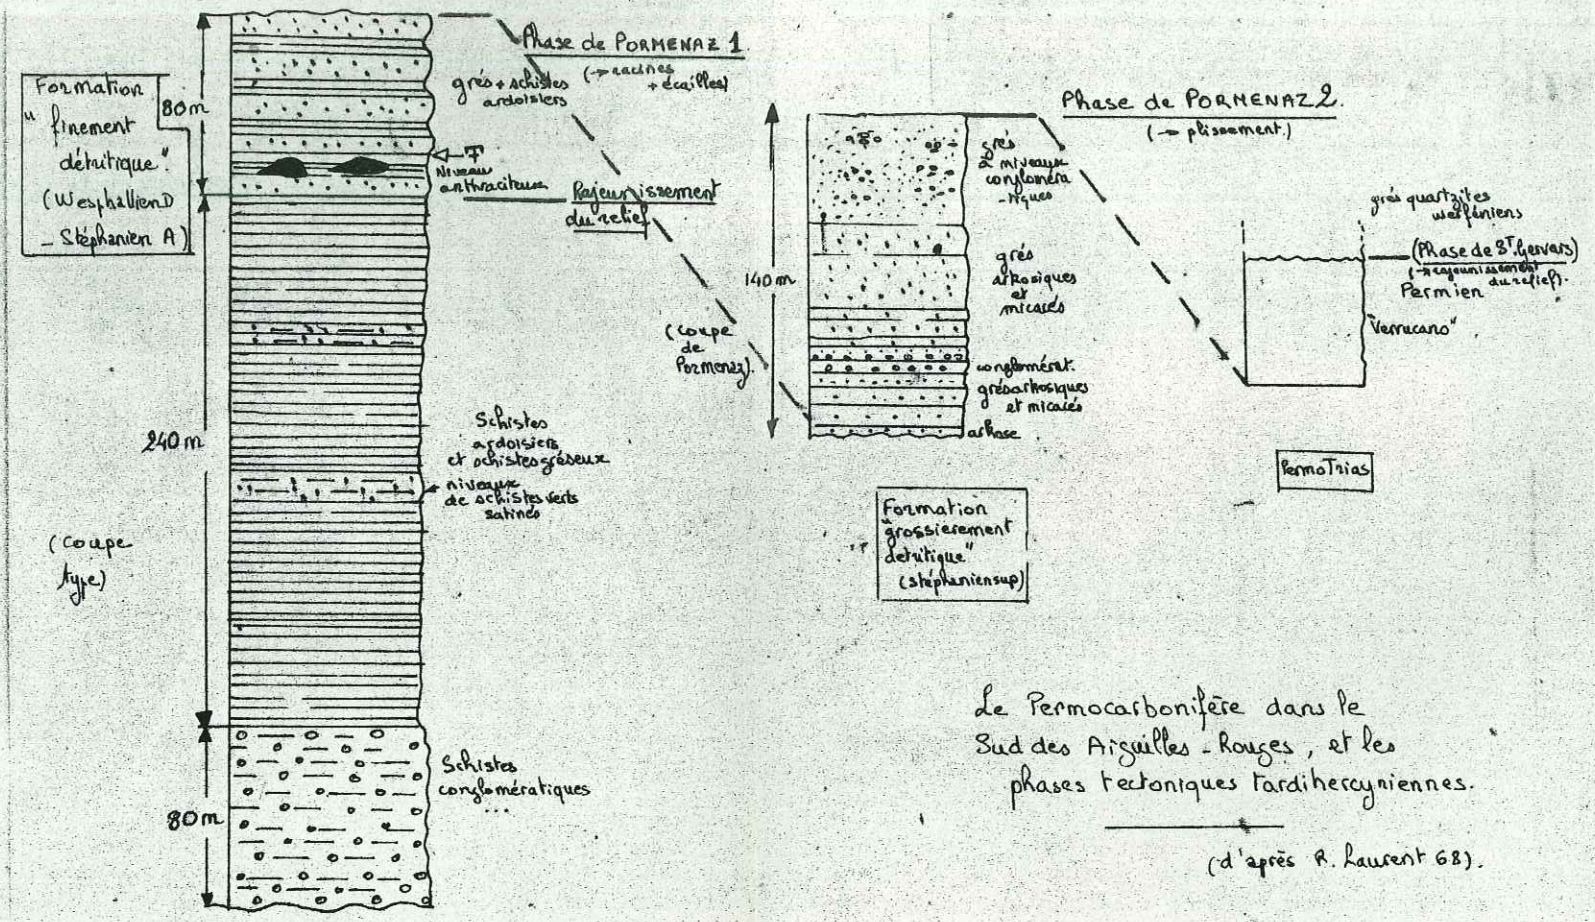 Formation
" finement
détritique"
(Wesphallien D
_ Stéphanien A)
80m
240m
(coupe
type)
80m
Phase de PORMENAZ 1
(→ racines
+ écailles)
grés + schistes
ardoisiers
Niveau
anthraciteux
Rajeunissement
du relief
Schistes
ardoisiers
et schistes gréseux
niveaux
de schistes verts
satinés
Schistes
conglomératiques
...
(coupe
de
Pormenaz).
140m
Phase de PORMENAZ 2.
(→ plissement.)
grés
à niveaux
congloméra
-tiques
grés
arkosiques
et
micacés
conglomérat.
grés arkosiques
et micacés
arkose
Formation
"grossièrement
detritique"
(stéphanien sup)
grés quartzites
werféniens
(Phase de St. Gervais)
(→ rajeunissement
du relief).
Permien
"Verrucano"
PermoTrias
Le Permocarbonifère dans le
Sud des Aiguilles-Rouges, et les
phases tectoniques tardihercyniennes.
(d'après R. Laurent 68).